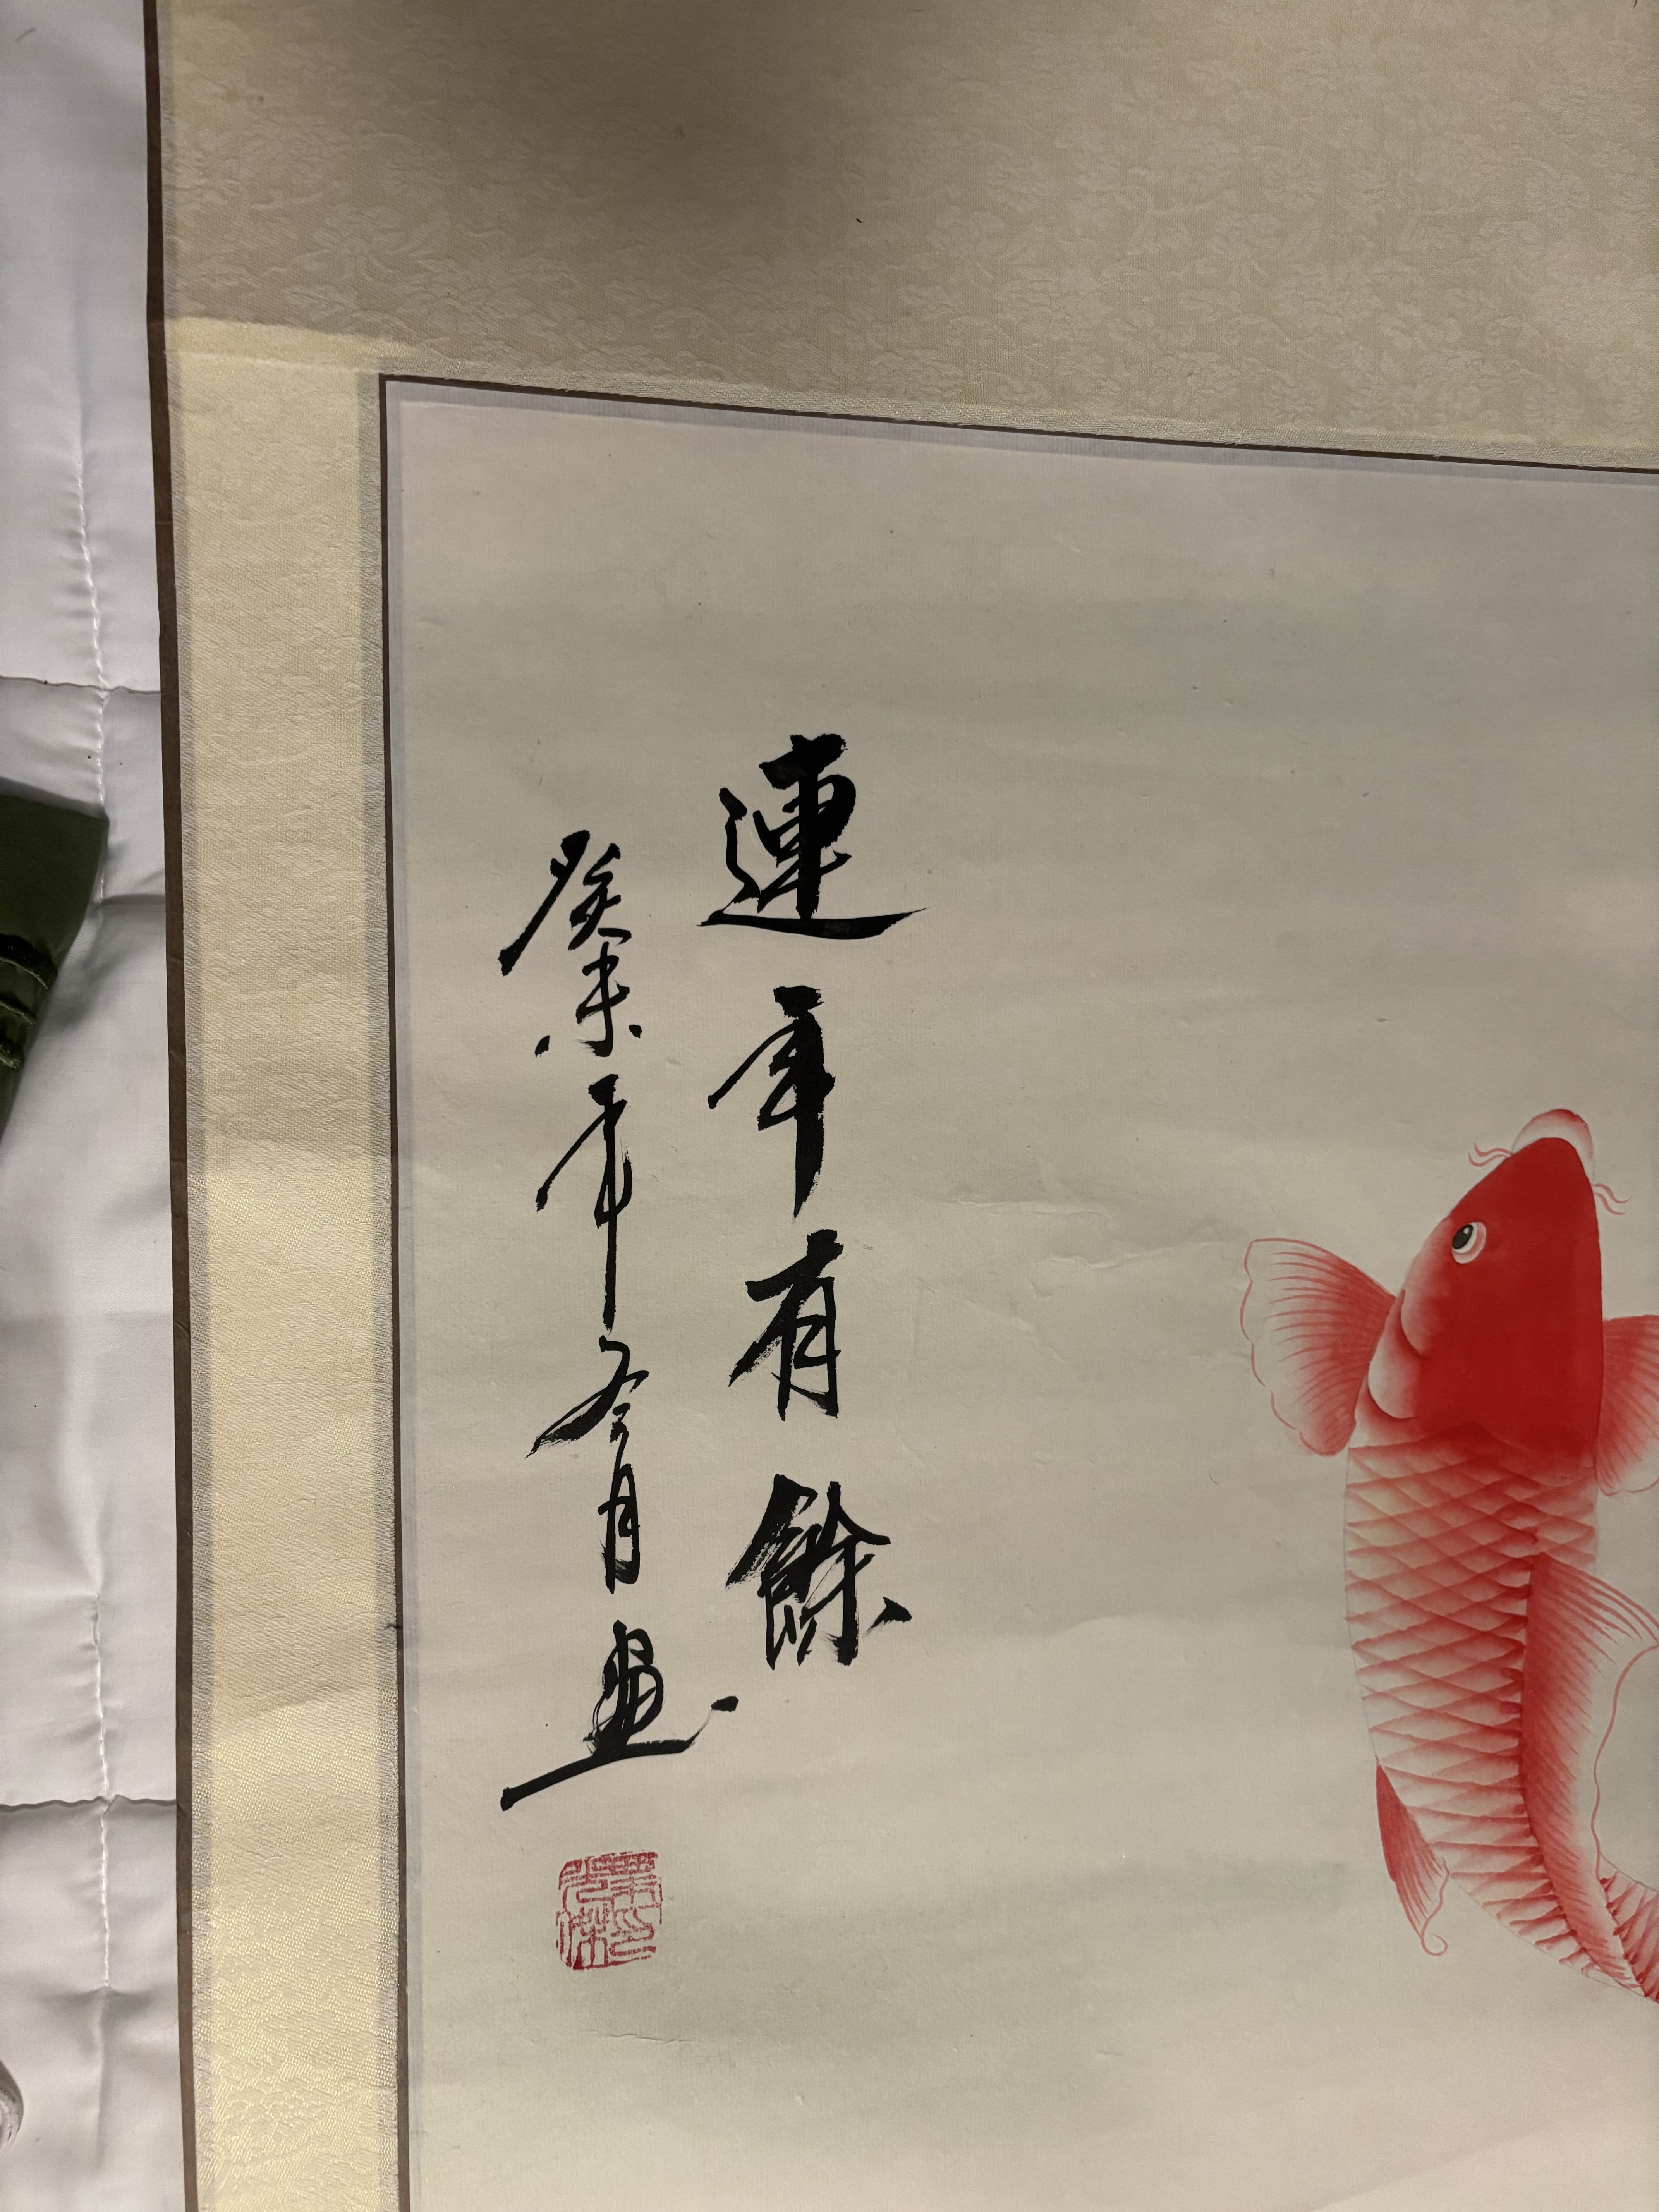 連年有餘
癸未年冬月画